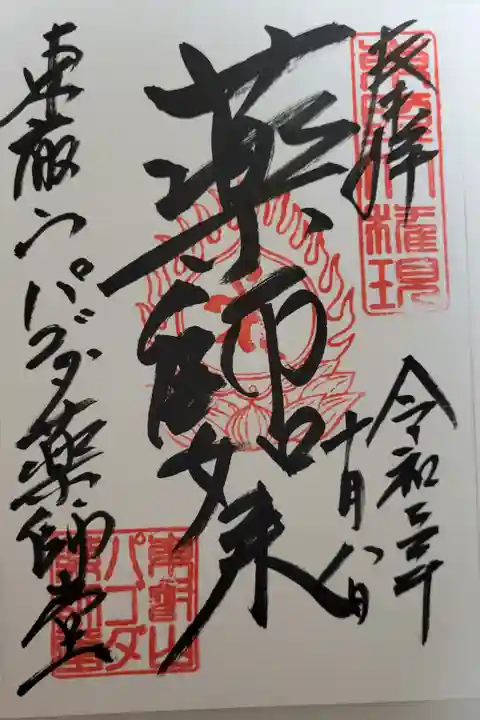 奉拝
令和三年
十月八日
薬師如来
山パゴダ薬師堂
権現
パゴダ
薬師堂